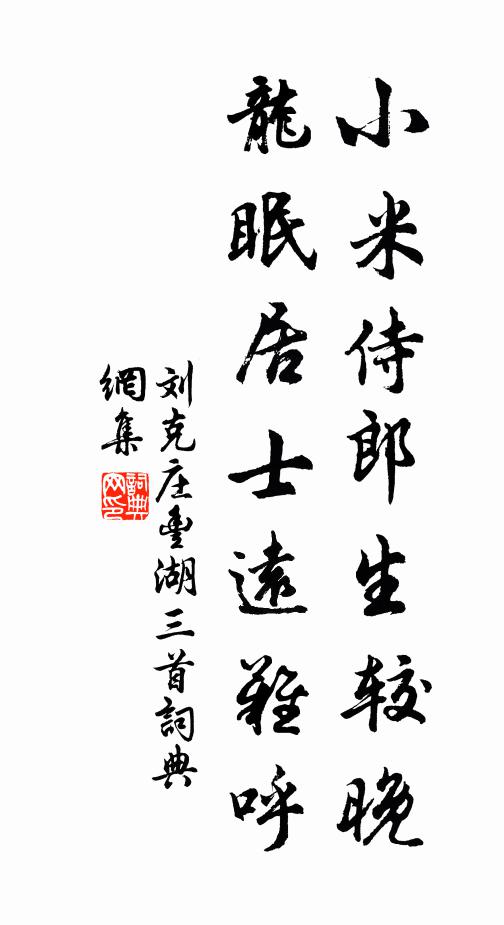 小米侍郎生较晚
龍眠居士遠難呼
刘克庄豐湖三首詞典
網集
詞典
网印